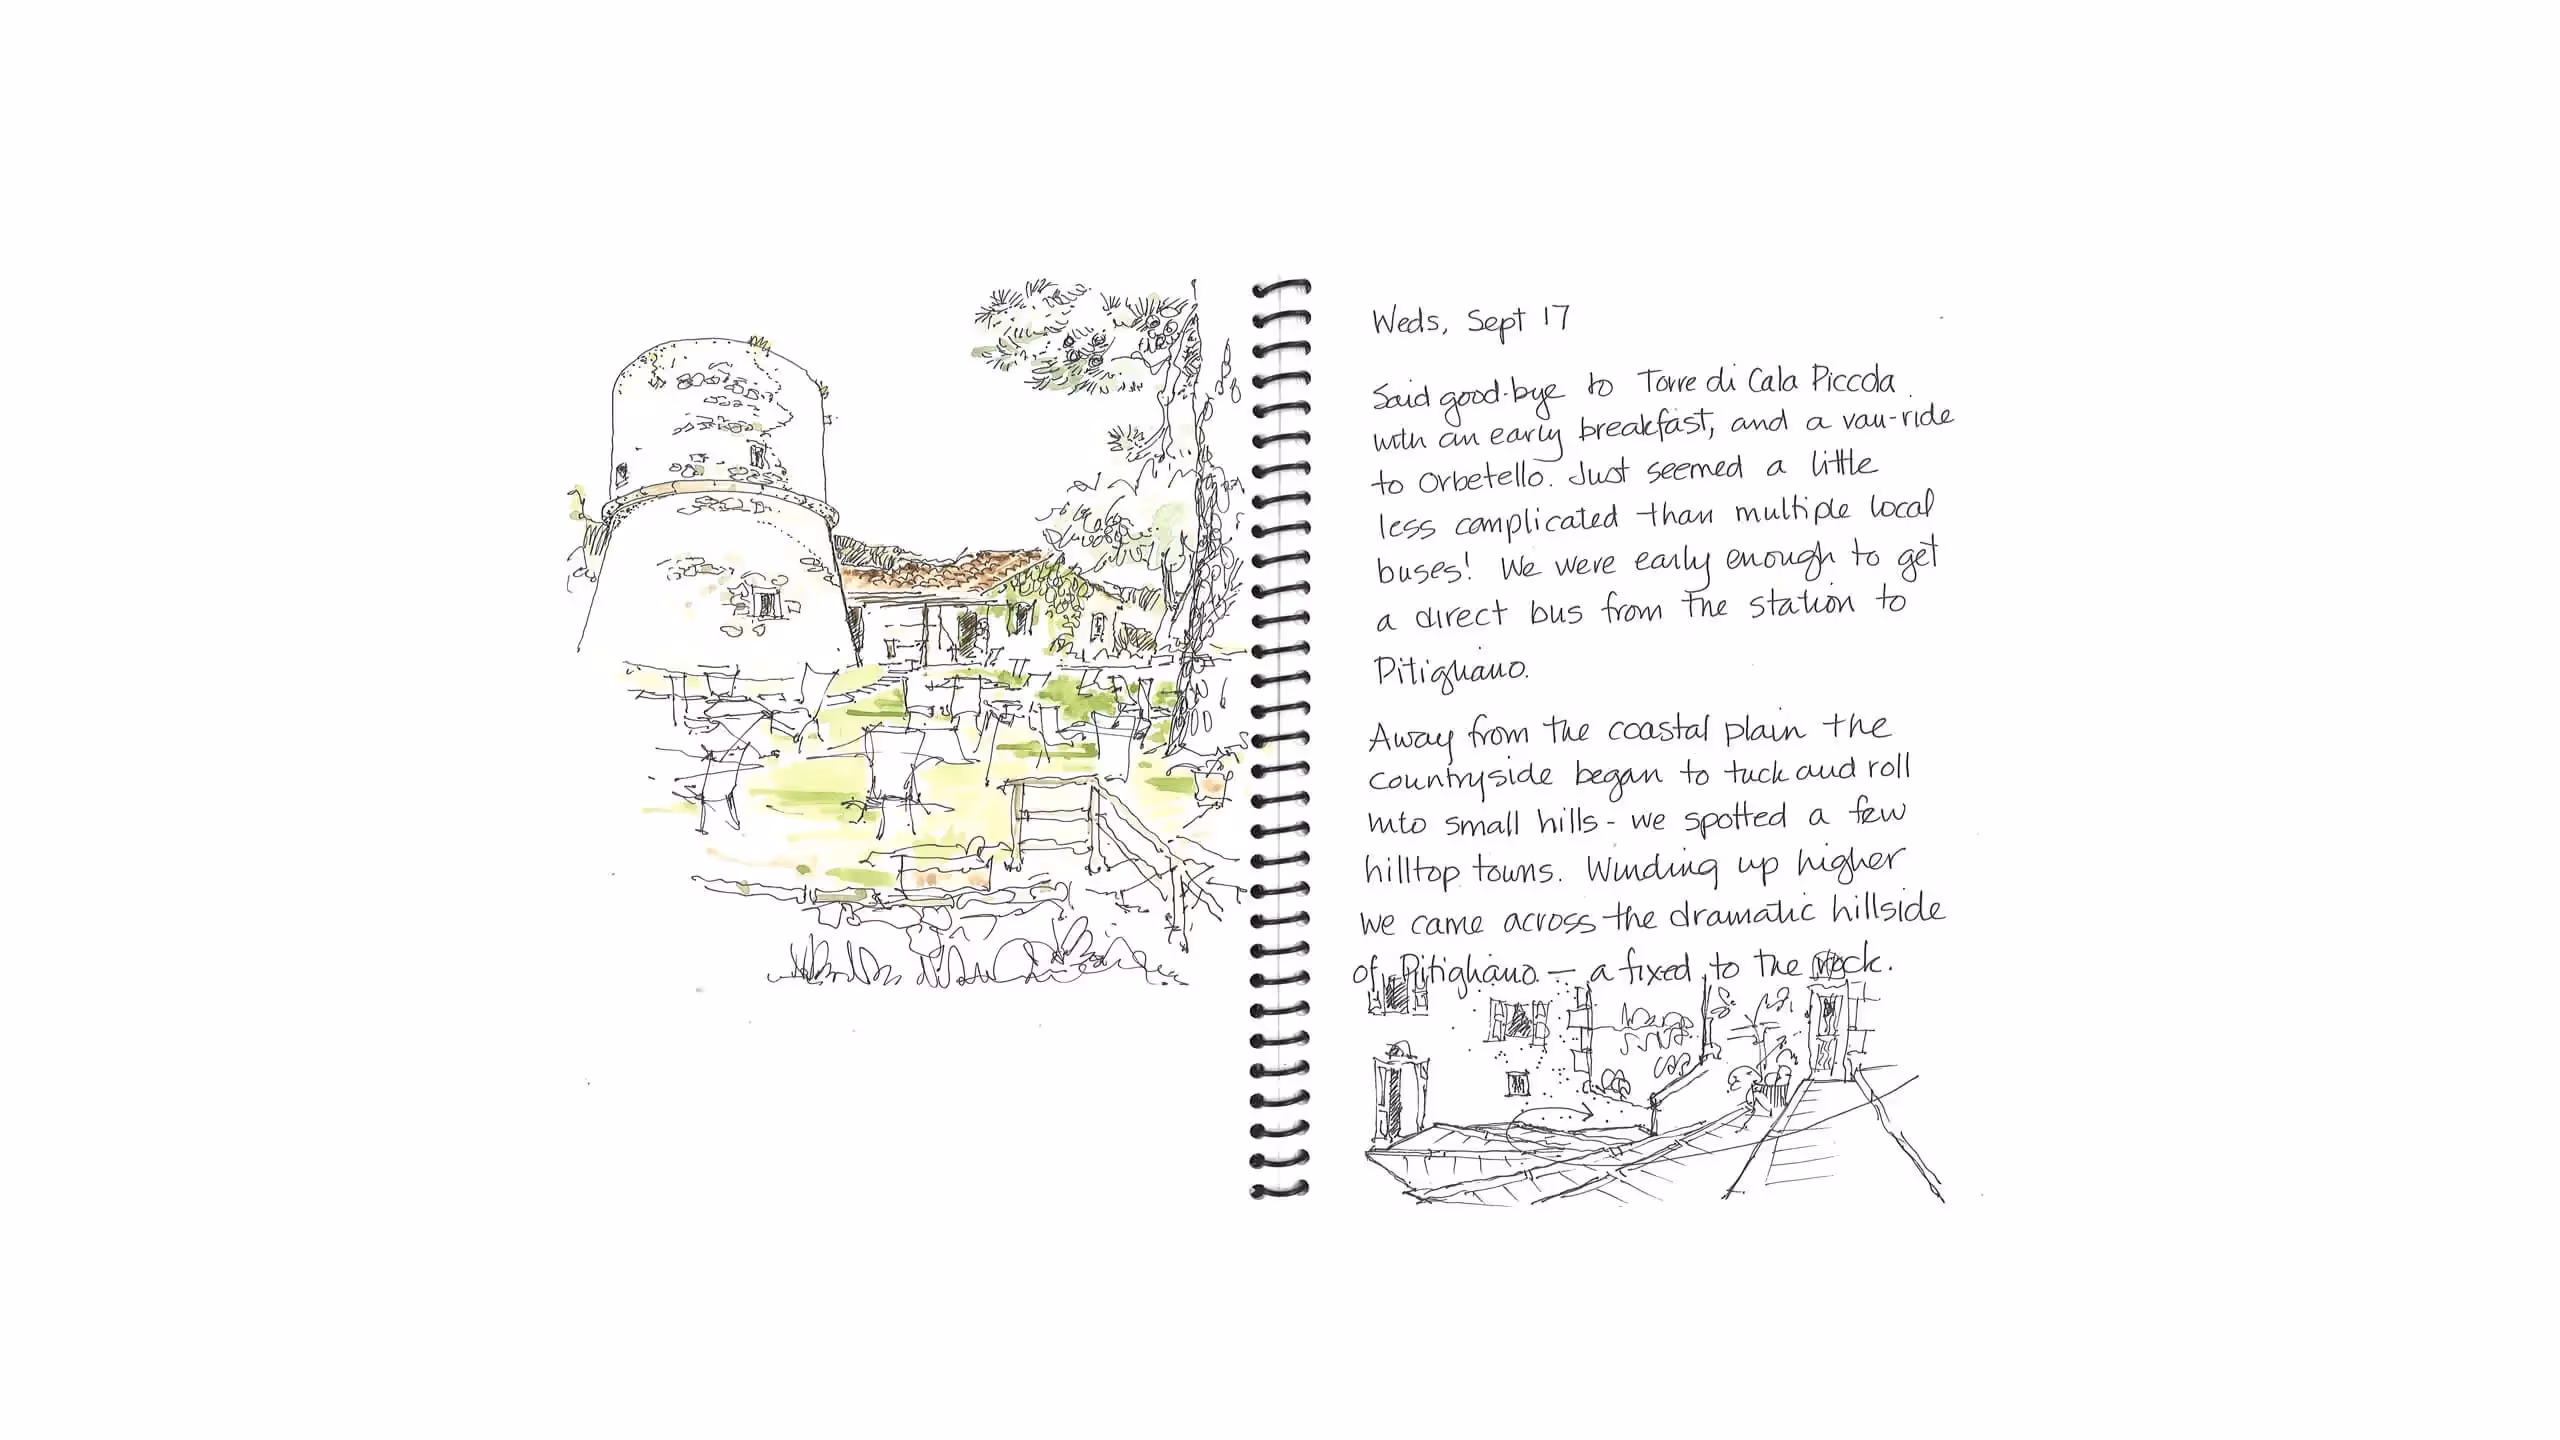 Weds, Sept 17
Said good-bye to Torre di Cala Piccola
with an early breakfast, and a van-ride
to Orbetello. Just seemed a little
less complicated than multiple local
buses! We were early enough to get
a direct bus from the station to
Pitigliano.
Away from the coastal plain the
countryside began to tuck and roll
into small hills - we spotted a few
hilltop towns. Winding up higher
we came across the dramatic hillside
of Pitigliano — a fixed to the rock.